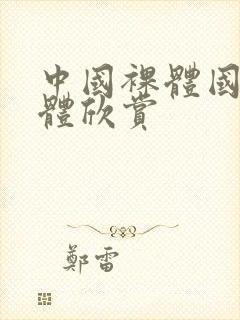 中國裸體國
體欣賞
鄭雷